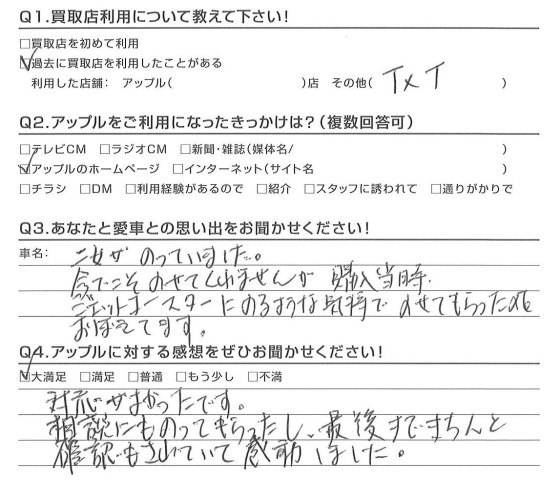 Q1.買取店利用について教えて下さい!
□買取店を初めて利用
☑過去に買取店を利用したことがある
利用した店舗: アップル( )店 その他( TxT )
Q2.アップルをご利用になったきっかけは?(複数回答可)
□テレビCM □ラジオCM □新聞・雑誌(媒体名/ )
☑アップルのホームページ □インターネット(サイト名 )
□チラシ □DM □利用経験があるので □紹介 □スタッフに誘われて □通りがかりで
Q3.あなたと愛車との思い出をお聞かせください!
車名: 二女がのっていました。
今でこそのせてくれませんが 購入当時
ジェットコースターにのるような気持でのせてもらったのを
おぼえてます。
Q4.アップルに対する感想をぜひお聞かせください!
☑大満足 □満足 □普通 □もう少し □不満
対応がよかったです。
相談にものってもらったし、最後まできちんと
確認もされていて感動しました。